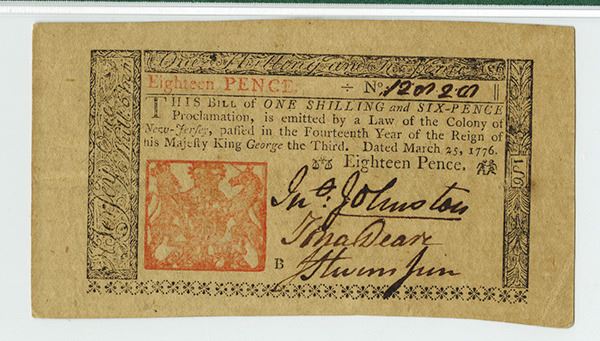 One Shilling and Six-Pence
Eighteen PENCE. ÷ No.
THIS BILL of ONE SHILLING and SIX-PENCE
Proclamation, is emitted by a Law of the Colony of
New-Jersey, passed in the Fourteenth Year of the Reign of
his Majesty King George the Third. Dated March 25, 1776.
Eighteen Pence.
Jno: Johnston
Jona Deare
B